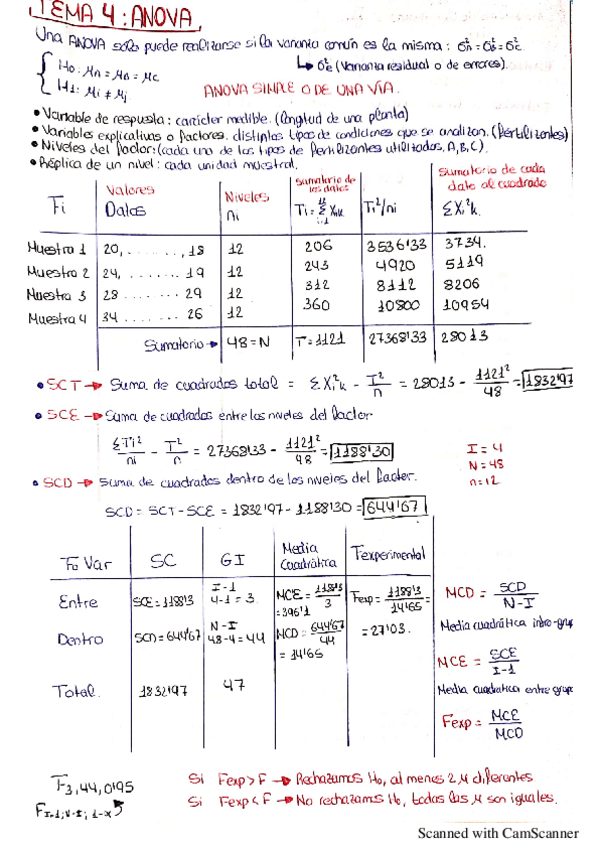 TEMA 4: ANOVA.
Una ANOVA solo puede realizarse si la varianza común es la misma: σ²A = σ²B = σ²C
H0: μA = μB = μC
↳ σ²e (Varianza residual o de errores).
H1: μi ≠ μj
ANOVA SIMPLE O DE UNA VÍA.
• Variable de respuesta: carácter medible. (longitud de una planta)
• Variables explicativas o factores. distintos tipos de condiciones que se analizan. (fertilizantes)
• Niveles del factor: (cada uno de los tipos de fertilizantes utilizados, A, B, C).
• Réplica de un nivel: cada unidad muestral.
Fi | Valores Datos | Niveles ni | Sumatorio de los datos Ti = Σ Xik | Ti²/ni | Sumatorio de cada dato al cuadrado ΣXi²k.
Muestra 1 | 20, ........, 18 | 12 | 206 | 3536'33 | 3734.
Muestra 2 | 24, ....... 19 | 12 | 243 | 4920 | 5119
Muestra 3 | 28 ........ 29 | 12 | 312 | 8112 | 8206
Muestra 4 | 34 ....... 26 | 12 | 360 | 10800 | 10954
Sumatorio → | 48 = N | T = 1121 | 27368'33 | 28013
• SCT → Suma de cuadrados total = ΣXi²k - T²/n = 28013 - 1121²/48 = 1832'97
• SCE → Suma de cuadrados entre los niveles del factor
ΣTi²/ni - T²/n = 27368'33 - 1121²/48 = 1188'30
I = 4
N = 48
n = 12
• SCD → Suma de cuadrados dentro de los niveles del factor.
SCD = SCT - SCE = 1832'97 - 1188'30 = 644'67
Fo Var | SC | Gl | Media Cuadrática | Fexperimental
Entre | SCE = 1188'3 | I-1 4-1 = 3. | MCE = 1188'3/3 = 396'1 | Fexp = 1188'3/14'65 = = 27'03.
Dentro | SCD = 644'67 | N-I 48-4 = 44 | MCD = 644'67/44 = 14'65
Total. | 1832'97 | 47
MCD = SCD/N-I
Media cuadrática intra-grup
MCE = SCE/I-1
Media cuadratica entre grupo
Fexp = MCE/MCD
F3,44,0'95
FI-1; N-I; 1-α
Si Fexp > F → Rechazamos H0, al menos 2 μ diferentes
Si Fexp < F → No rechazamos H0, todas las μ son iguales.
Scanned with CamScanner